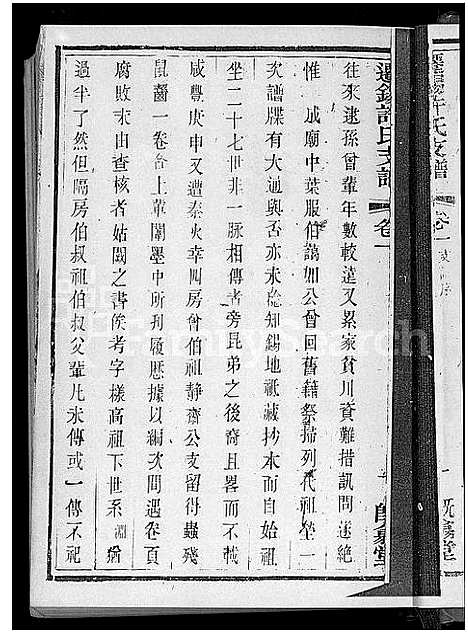 遷錫許氏支譜
卷一
往來逮孫曾輩年數較遠又累家貧川資難措訊問遂絕
惟　咸廟中葉服伯謁如公曾回舊籍祭掃列代祖塋一
次譜牒有大通與否亦未竟知錫地祇藏抄本而自始
坐二十七世非一脉相傳者旁昆弟之後裔且畧而不載
咸豐庚申又遭秦火幸四房曾伯祖靜齋公支留得蟲殘
鼠齧一卷合上葦闈墨中所刊履歷據以編次間遇卷頁
腐敗末由查核者姑闕之書俟考字樣高祖下世系淵酋
過半了然但隔房伯叔祖伯叔父輩凡未傳或一傳不祀
FamilySearch